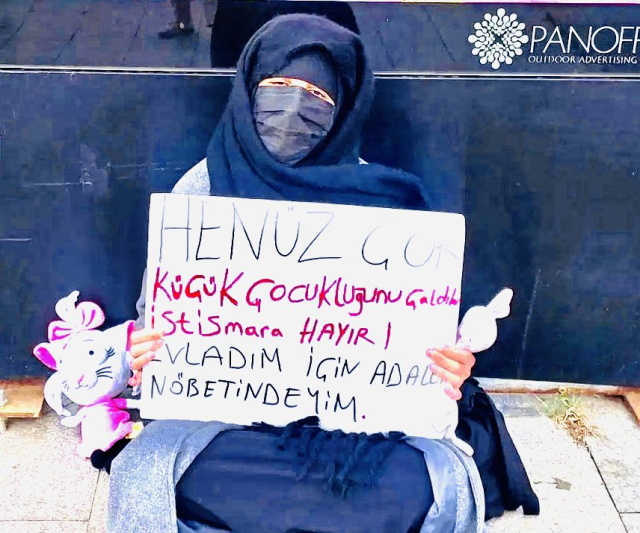 PANOFF
OUTDOOR ADVERTISING
HENÜZ ÇOK
KÜÇÜK ÇOCUKLUĞUNU Çaldılar
İstismara HAYIR!
EVLADIM İÇİN ADALET
NÖBETİNDEYİM.